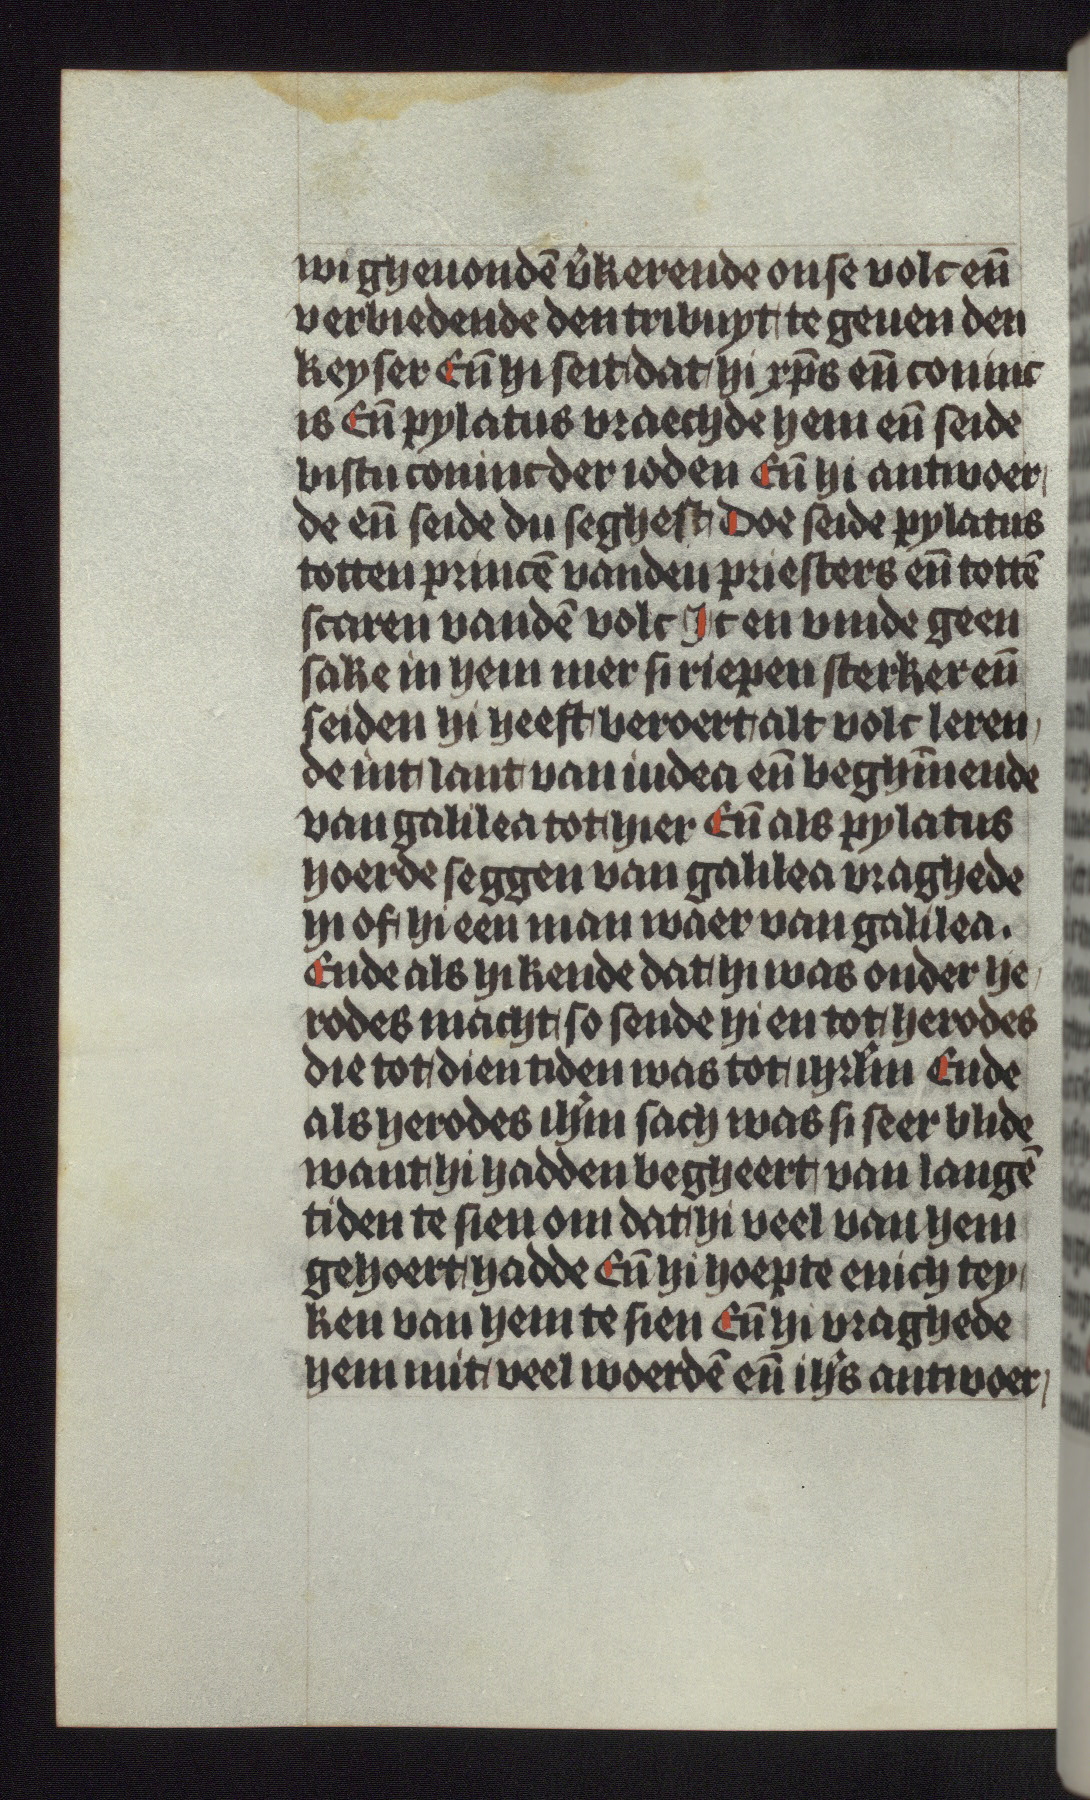 wi gheuondē v̄kerende onse volc en̄
verbiedende den tribuyt te geuen den
keyser En̄ hi seit dat hi xp̄s en̄ coninc
is En̄ pylatus vraechde hem en̄ seide
bistu coninc der ioden En̄ hi antwoer
de en̄ seide du seghest Doe seide pylatus
totten princē vanden priesters en̄ tottē
scaren vandē volc Ic en vinde geen
sake in hem mer si riepen sterker en̄
seiden hi heeft beroert alt volc leren
de int lant van iudea en̄ beghīnende
van galilea tot hier En̄ als pylatus
hoerde seggen van galilea vraghede
hi of hi een man waer van galilea.
Ende als hi kende dat hi was onder he
rodes macht so sende hi en tot herodes
die tot dien tiden was tot ihrl̄m Ende
als herodes ih̄m sach was si seer blide
want hi hadden begheert van langē
tiden te sien om dat hi veel van hem
gehoert hadde En̄ hi hoepte enich tey
ken van hem te sien En̄ hi vraghede
hem mit veel woerdē en̄ ih̄s antwoer